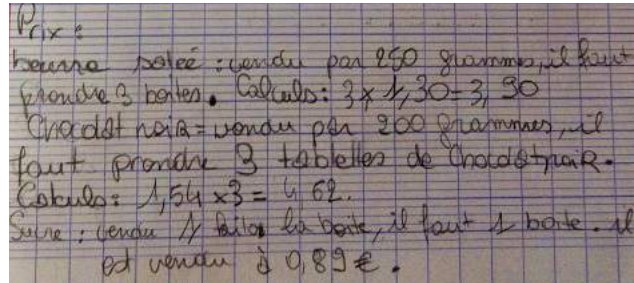 Prix :
beurre salée : vendu par 250 grammes, il faut
prendre 3 boites. Calculs : 3 x 1,30 = 3,90
Chocolat noir = vendu par 200 grammes, il
faut prendre 3 tablettes de chocolat noir.
Calculs : 1,54 x 3 = 4,62.
Sucre : vendu 1 kilo la boite, il faut 1 boite. il
est vendu à 0,89 €.